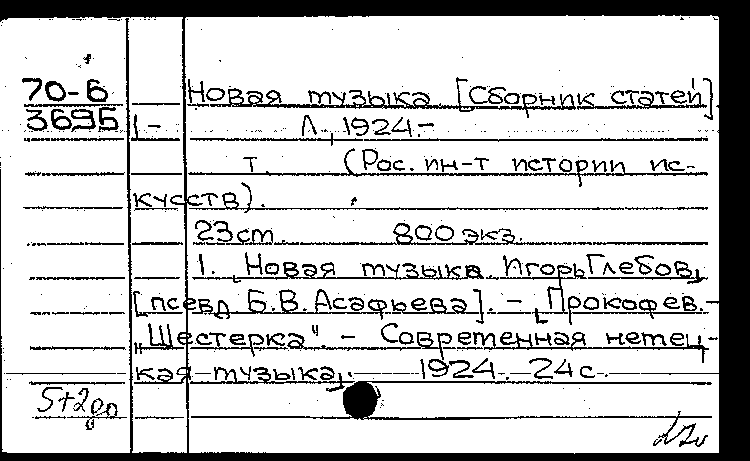 70-6 Новая музыка [Сборник статей].
3695 1- Л., 1924.-
т. (Рос. ин-т истории ис-
кусств).
23 см. 800 экз.
1. „Новая музыка. Игорь Глебов,
[псевд. Б.В. Асафьева]. – „Прокофев.-
„Шестерка". – Современная немец-
кая музыка". 1924. 24 с.
5+2до